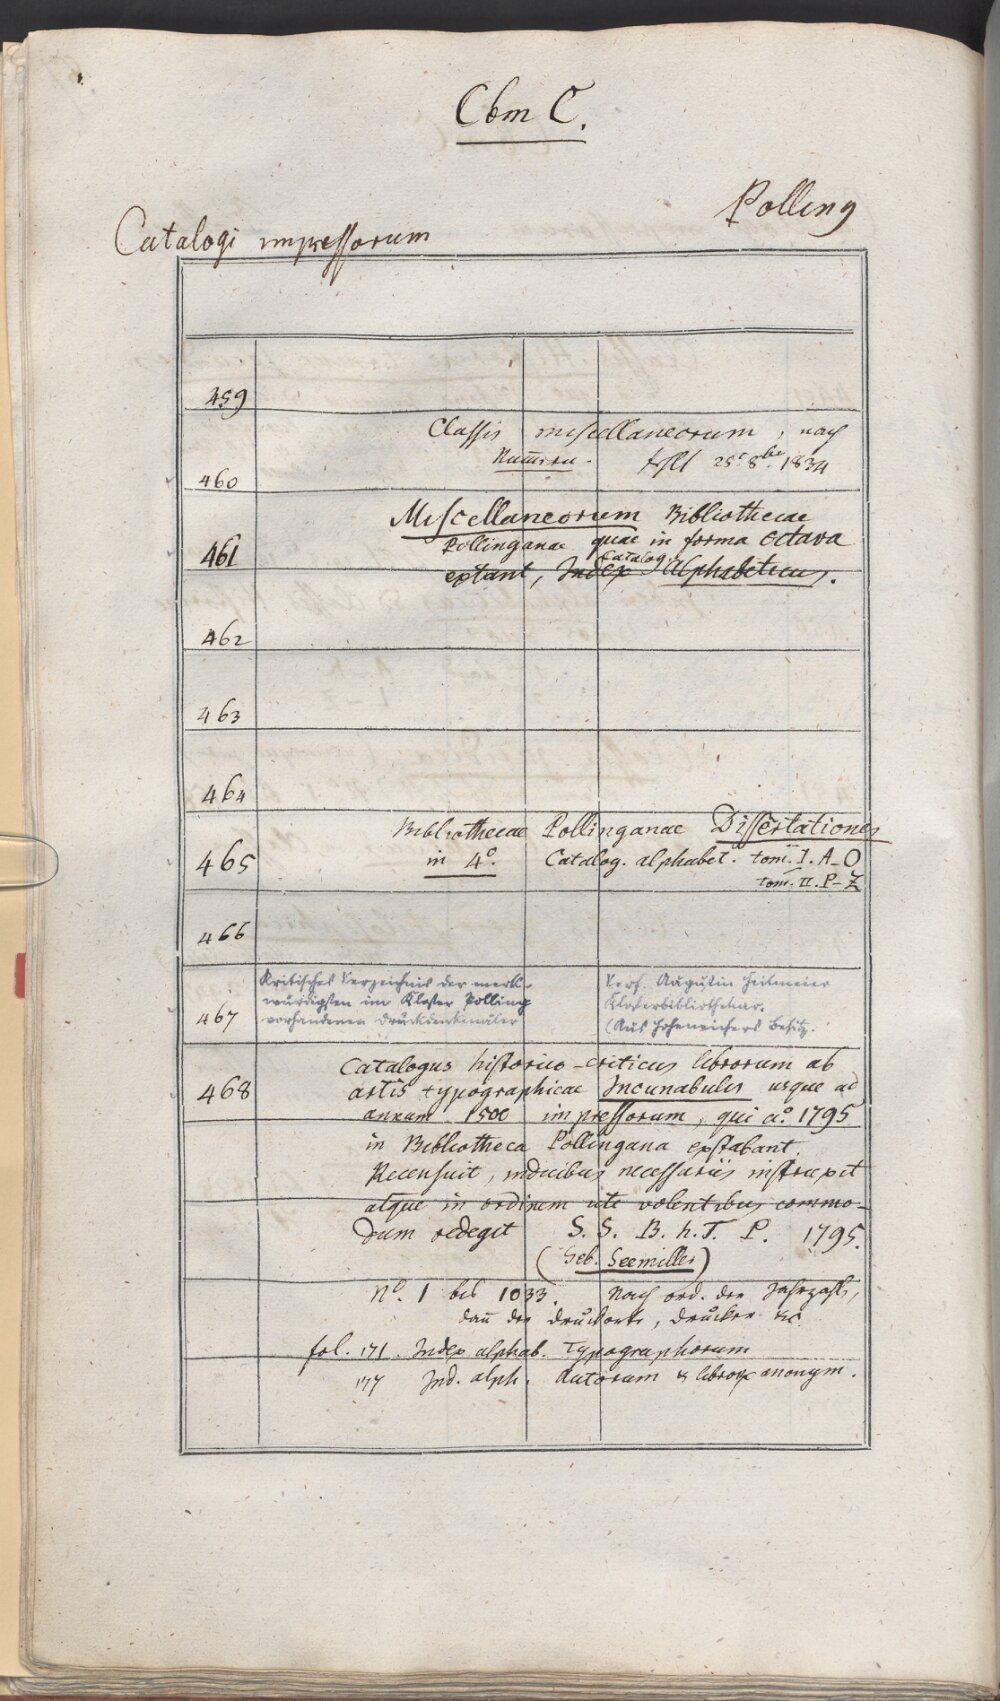 Cbm C.
Polling
Catalogi impressorum
459
Classis miscellaneorum, nach
Num̅ern. 25t. 8br. 1834
460
Miscellaneorum Bibliothecae
Pollinganae quae in forma octava
461
Catalog
extant, Index alphabeticus.
462
463
464
Bibliothecae Pollinganae Dissertationes
465 in 4o. Catalog. alphabet. tom. I. A–O
tom. II. P–Z
466
Kritisches Verzeichnis der merk-
würdigsten im Kloster Polling
vorhandenen Druckdenkmäler
Verf. Augustin Heitmeier
Klosterbibliothekar.
(Aus Hoheneichers Besitz.
467
Catalogus historico-criticus librorum ab
468 artis typographicae Incunabulis usque ad
annum 1500 impressorum, qui ao. 1795
in Bibliotheca Pollingana exstabant.
Recensuit, indicibus necessariis instruxit
atque in ordinem uti volentibus commo-
dum redegit S. S. B. h. T. P. 1795.
(Seb. Seemiller)
No. 1 bis 1033. Nach ord. der Jahrzahl,
dan̅ der Druckorte, Drucker &c.
fol. 171. Index alphab. Typographorum
177 Ind. alph. Autorum & libror. anonym.